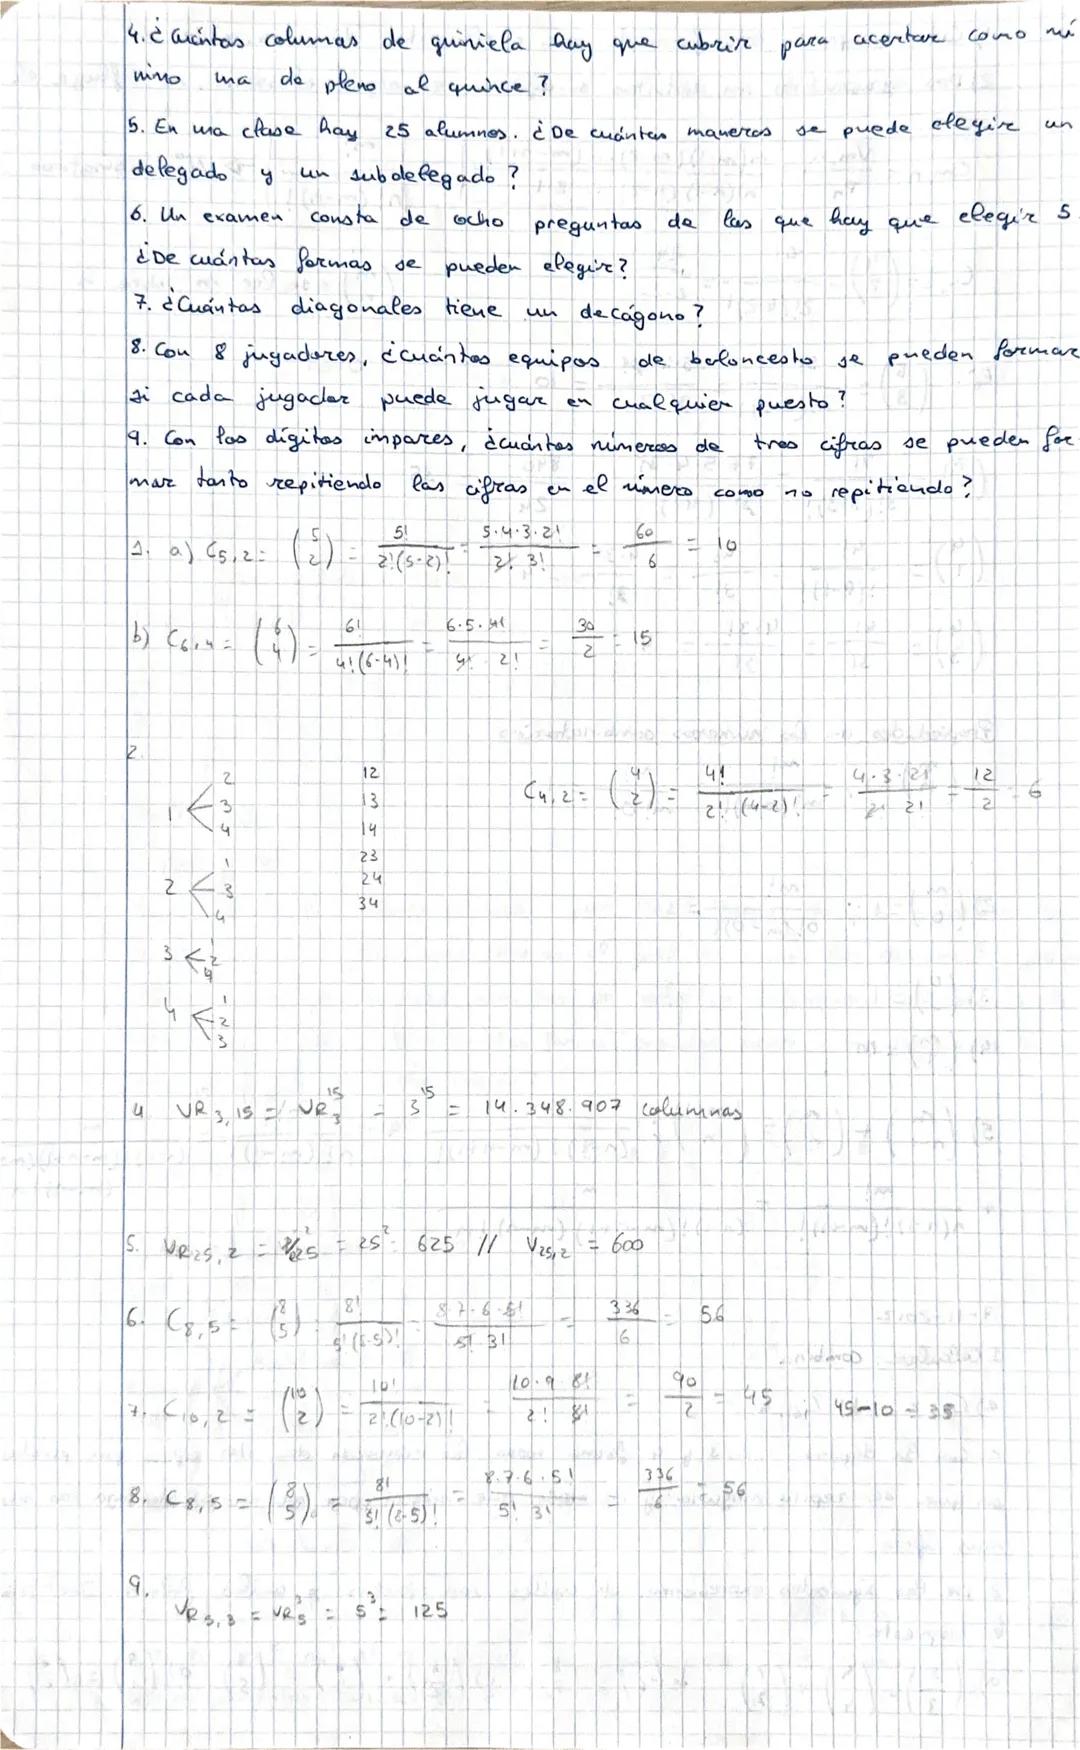 4. ¿Cuántas columas de quiniela hay que cubrir para acertar como mí
nimo una de pleno al quince?
5. En una clase hay 25 alumnos. ¿De cuántas maneras se puede elegir un
delegado y un subdelegado?
6. Un examen consta de ocho preguntas de las que hay que elegir 5.
¿De cuántas formas se pueden elegir?
7. ¿Cuántas diagonales tiene un decágono?
8. Con 8 jugadores, ¿cuántos equipos de baloncesto se pueden formar
si cada jugador puede jugar en cualquier puesto?
9. Con los dígitos impares, ¿cuántos números de tres cifras se pueden for-
mar tanto repitiendo las cifras en el número como no repitiendo?
1. a) C5,2 = (5 2) = 5!/2!(5-2)! = 5·4·3·2!/2! 3! = 60/6 = 10
b) C6,4 = (6 4) = 6!/4!(6-4)! = 6·5·4!/4! 2! = 30/2 = 15
2.
1 < 2 3 4
2 < 1 3 4
3 < 1 2 4
4 < 1 2 3
12
13
14
23
24
34
C4,2 = (4 2) = 4!/2! (4-2)! = 4·3·2!/2! 2! = 12/2 = 6
4 VR3,15 = VR3^15 = 3^15 = 14.348.907 columnas
5. VR25,2 = 25^2 = 625 // V25,2 = 600
6. C8,5 = (8 5) = 8!/5!(8-5)! = 8·7·6·5!/5! 3! = 336/6 = 56
7. C10,2 = (10 2) = 10!/2!(10-2)! = 10·9 8!/2! 8! = 90/2 = 45 45-10 = 35
8. C8,5 = (8 5) = 8!/5!(8-5)! = 8·7·6·5!/5! 3! = 336/6 = 56
9.
VR5,3 = VR5^3 = 5^3 = 125